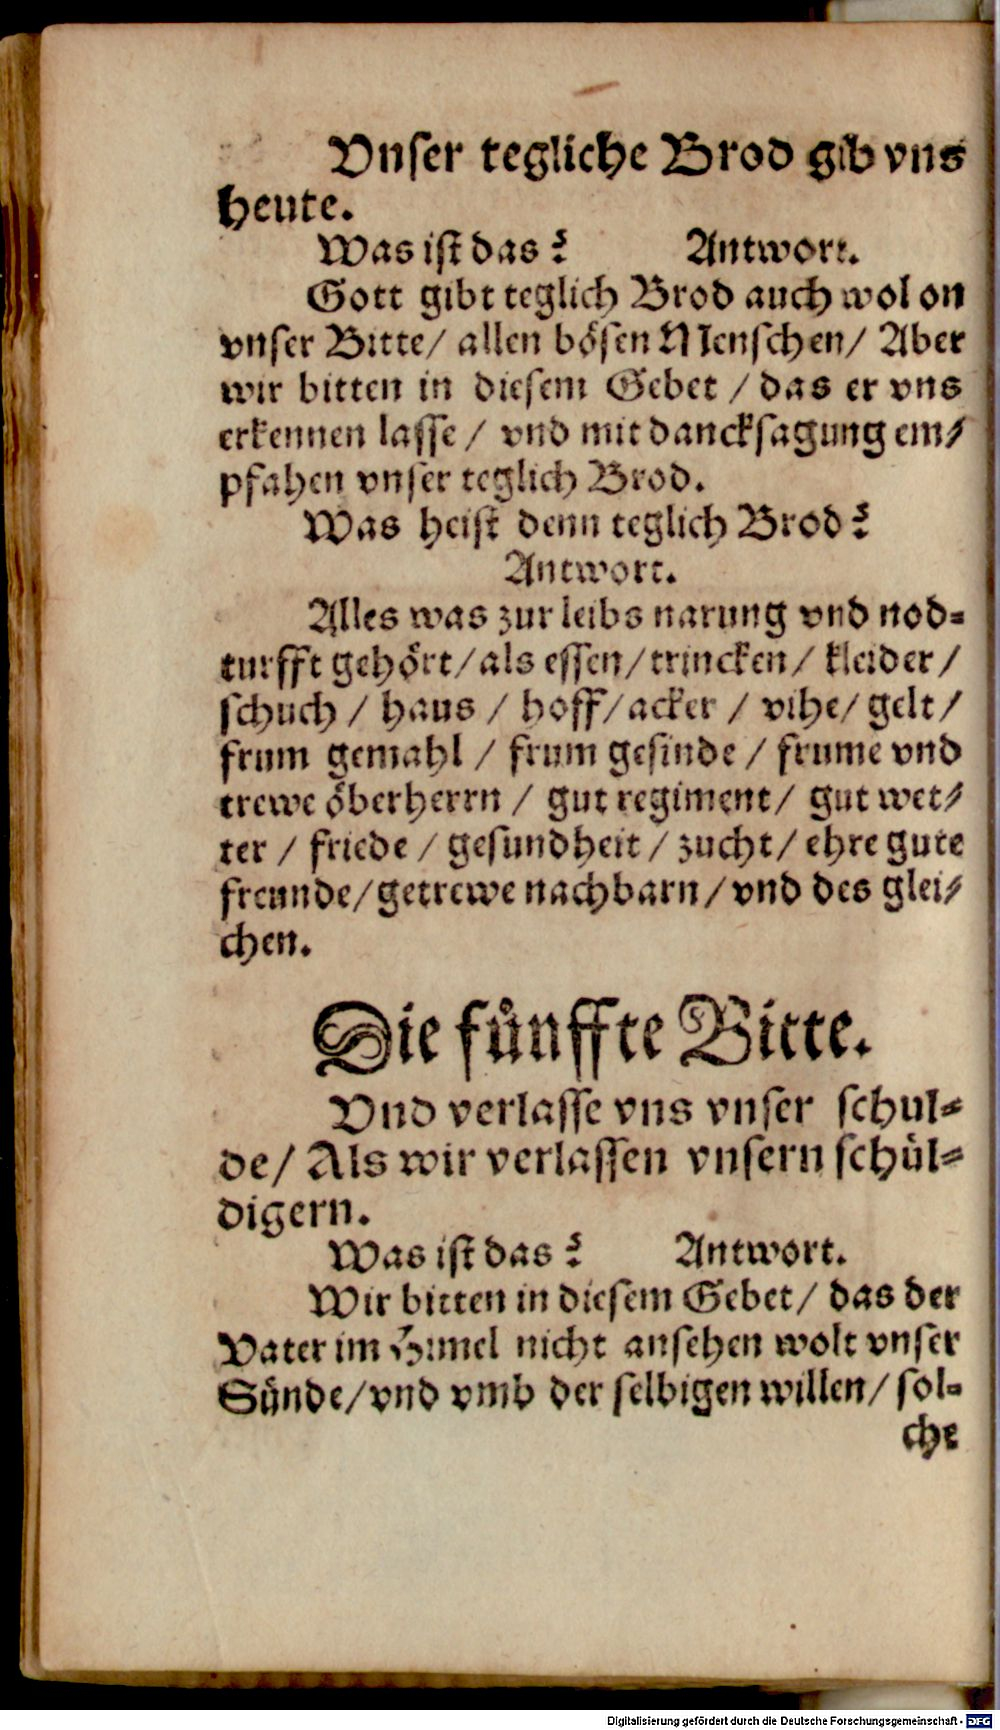 Vnser tegliche Brod gib vns
heute.
Was ist das? Antwort.
Gott gibt teglich Brod auch wol on
vnser Bitte/ allen bösen Menschen/ Aber
wir bitten in diesem Gebet / das er vns
erkennen lasse / vnd mit dancksagung em⸗
pfahen vnser teglich Brod.
Was heist denn teglich Brod?
Antwort.
Alles was zur leibs narung vnd nod⸗
turfft gehört/ als essen/ trincken/ kleider /
schuch / haus / hoff/ acker / vihe/ gelt /
frum gemahl / frum gesinde / frume vnd
trewe öberherrn / gut regiment/ gut wet⸗
ter / friede / gesundheit / zucht/ ehre gute
freunde/ getrewe nachbarn / vnd des glei⸗
chen.
Die fünffte Bitte.
Vnd verlasse vns vnser schul⸗
de/ Als wir verlassen vnsern schül⸗
digern.
Was ist das? Antwort.
Wir bitten in diesem Gebet/ das der
Vater im Himel nicht ansehen wolt vnser
Sünde/ vnd vmb der selbigen willen/ sol⸗
che
Digitalisierung gefördert durch die Deutsche Forschungsgemeinschaft - DFG